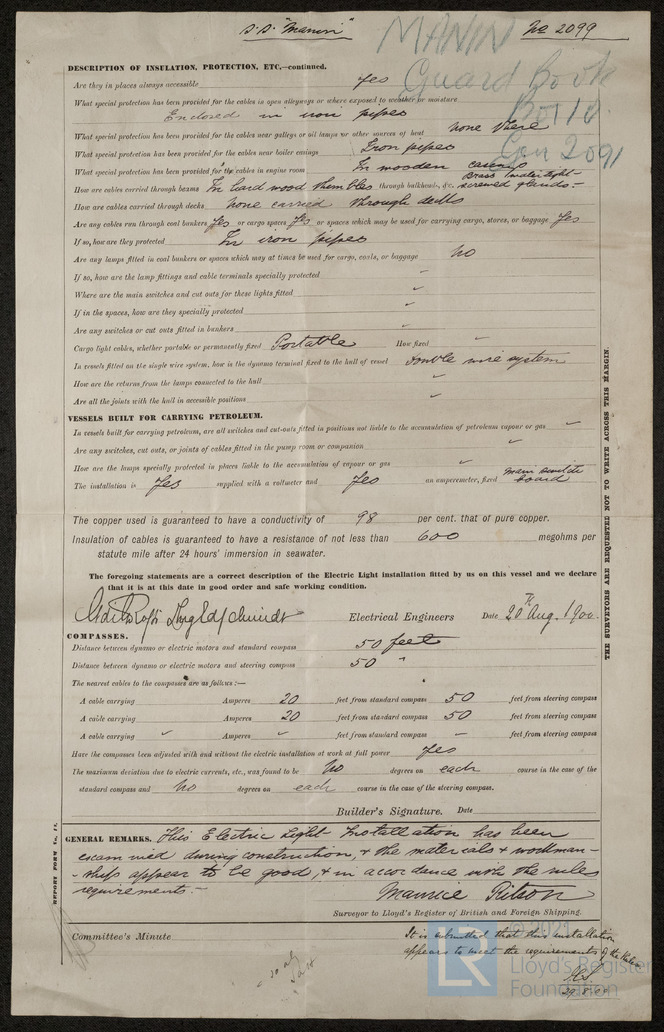 S.S. "Manin" No 2099
MANIN
Guard Book
DESCRIPTION OF INSULATION, PROTECTION, ETC.—continued.
Are they in places always accessible yes
What special protection has been provided for the cables in open alleyways or where exposed to weather or moisture
Enclosed in iron pipes
What special protection has been provided for the cables near galleys or oil lamps or other sources of heat none there
What special protection has been provided for the cables near boiler casings Iron pipes
What special protection has been provided for the cables in engine room In wooden casings
How are cables carried through beams In hard wood thembles through bulkheads, &c. Brass watertight screwed glands.—
How are cables carried through decks none carried through decks
Are any cables run through coal bunkers Yes or cargo spaces Yes or spaces which may be used for carrying cargo, stores, or baggage Yes
If so, how are they protected In iron pipes
Are any lamps fitted in coal bunkers or spaces which may at times be used for cargo, coals, or baggage No
If so, how are the lamp fittings and cable terminals specially protected
Where are the main switches and cut outs for these lights fitted
If in the spaces, how are they specially protected
Are any switches or cut outs fitted in bunkers
Cargo light cables, whether portable or permanently fixed Portable How fixed
In vessels fitted on the single wire system, how is the dynamo terminal fixed to the hull of vessel double wire system
How are the returns from the lamps connected to the hull
Are all the joints with the hull in accessible positions
VESSELS BUILT FOR CARRYING PETROLEUM.
In vessels built for carrying petroleum, are all switches and cut-outs fitted in positions not liable to the accumulation of petroleum vapour or gas
Are any switches, cut outs, or joints of cables fitted in the pump room or companion
How are the lamps specially protected in places liable to the accumulation of vapour or gas
The installation is Yes supplied with a voltmeter and Yes an amperemeter, fixed main switch board
The copper used is guaranteed to have a conductivity of 98 per cent. that of pure copper.
Insulation of cables is guaranteed to have a resistance of not less than 600 megohms per
statute mile after 24 hours' immersion in seawater.
The foregoing statements are a correct description of the Electric Light installation fitted by us on this vessel and we declare
that it is at this date in good order and safe working condition.
Electrical Engineers Date 20th Aug. 1900.
COMPASSES.
Distance between dynamo or electric motors and standard compass 50 feet
Distance between dynamo or electric motors and steering compass 50 "
The nearest cables to the compasses are as follows:—
A cable carrying Amperes 20 feet from standard compass 50 feet from steering compass
A cable carrying Amperes 20 feet from standard compass 50 feet from steering compass
A cable carrying Amperes feet from standard compass feet from steering compass
Have the compasses been adjusted with and without the electric installation at work at full power Yes
The maximum deviation due to electric currents, etc., was found to be No degrees on each course in the case of the
standard compass and No degrees on each course in the case of the steering compass.
Builder's Signature. Date
GENERAL REMARKS. This Electric Light Installation has been
examined during construction, & the materials & workman-
-ship appear to be good, & in accordance with the rules
requirements.—
Maurice Ritson
Surveyor to Lloyd's Register of British and Foreign Shipping.
Committee's Minute
It is submitted that this installation
appears to meet the requirements of the Rules
29.8.00
THE SURVEYORS ARE REQUESTED NOT TO WRITE ACROSS THIS MARGIN.
REPORT FORM No. 11.
LR
© 2021
Lloyd's Register
Foundation